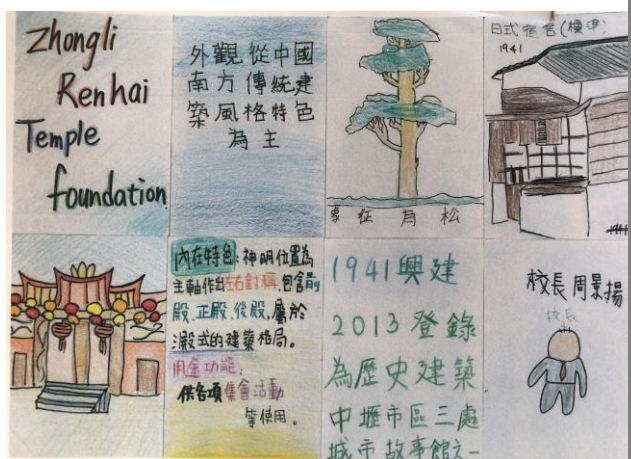 Zhongli
Renhai
Temple
foundation
外觀從中國
南方傳統建
築風格特色
為主
象征為松
日式宿舍(標準)
1941
內在特色:神明位置為
主軸作出左右對稱,包含前
殿、正殿、後殿,屬於
三殿式的建築格局。
用途功能:
供各項集會活動
等使用。
1941興建
2013登錄
為歷史建築
中壢市區三處
城市故事館之一
校長周景揚
校長